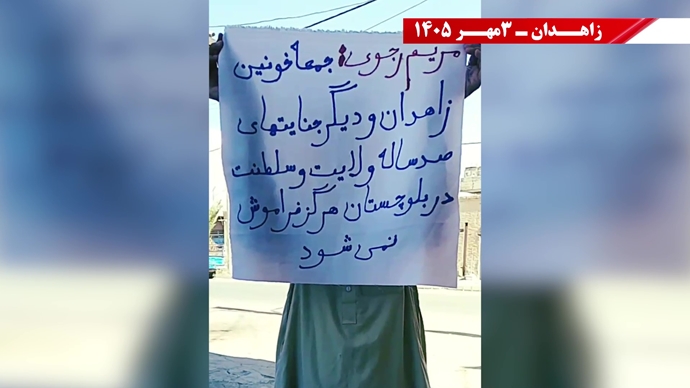 زاهـدان ـ ۳مهـر ۱۴۰۵
مریم رجوی: جمعه خونین
زاهدان و دیگر جنایتهای
صد ساله ولایت و سلطنت
در بلوچستان هرگز فراموش
نمی شود